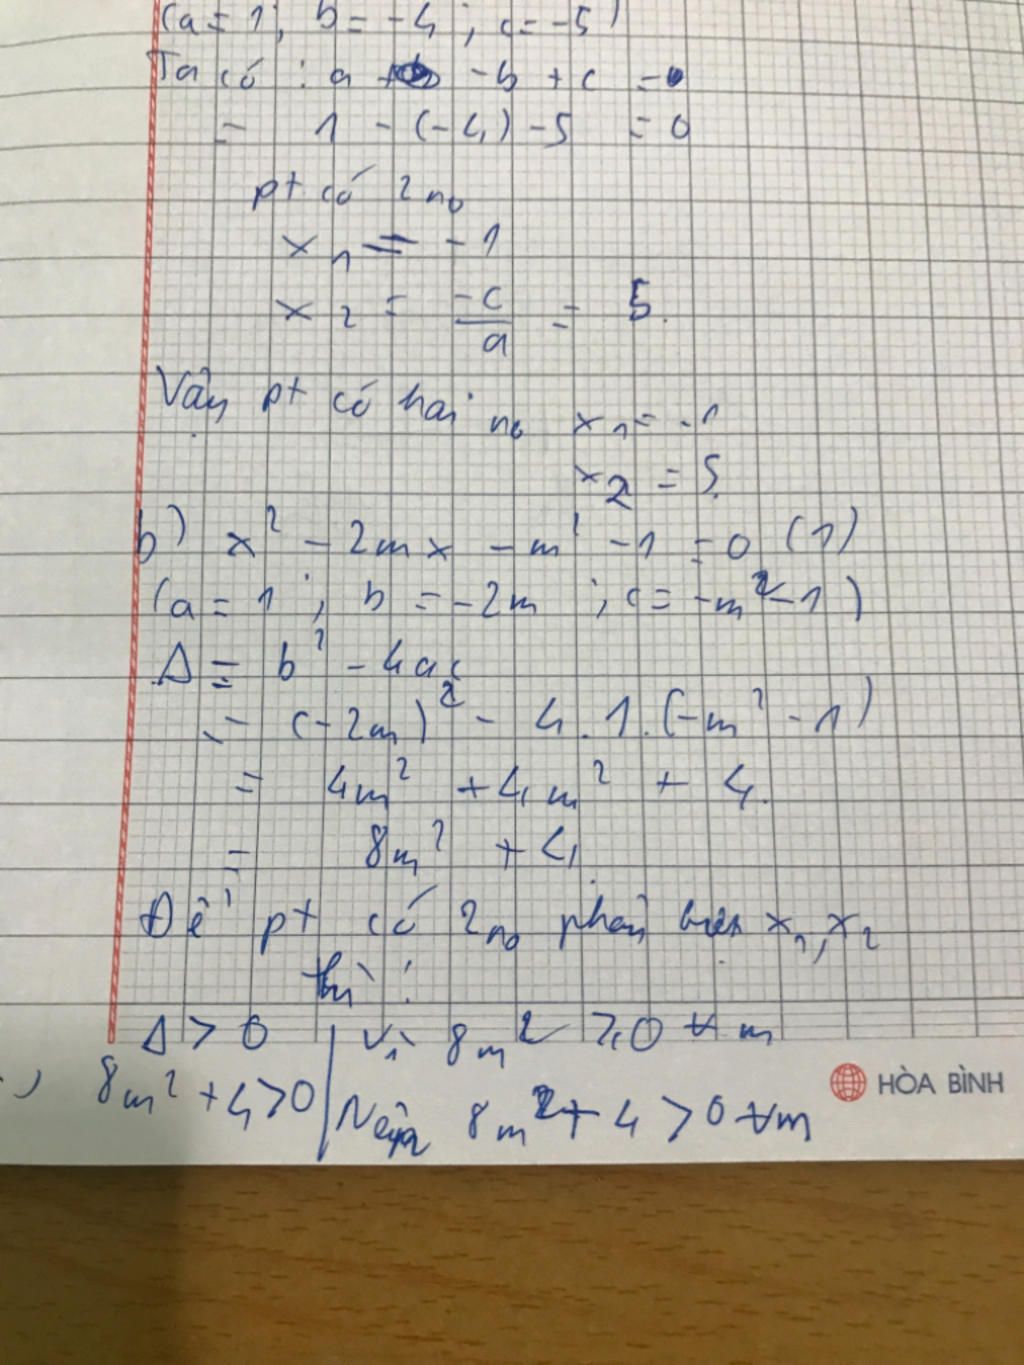 (a = 1; b = -4; c = -5)
Ta có : a - b + c = 0
= 1 - (-4) - 5 = 0
pt có 2 no
x₁ = -1
x₂ = -c/a = 5.
Vậy pt có hai no x₁ = -1
x₂ = 5.
b) x² - 2mx - m² - 1 = 0 (1)
(a = 1; b = -2m; c = -m² - 1)
Δ = b² - 4ac
= (-2m)² - 4.1.(-m² - 1)
= 4m² + 4m² + 4.
= 8m² + 4
Để pt có 2 no phân biệt x₁, x₂
thì :
Δ > 0 | Vì 8m² ≥ 0 ∀m
8m² + 4 > 0 | Nên 8m² + 4 > 0 ∀m
HÒA BÌNH